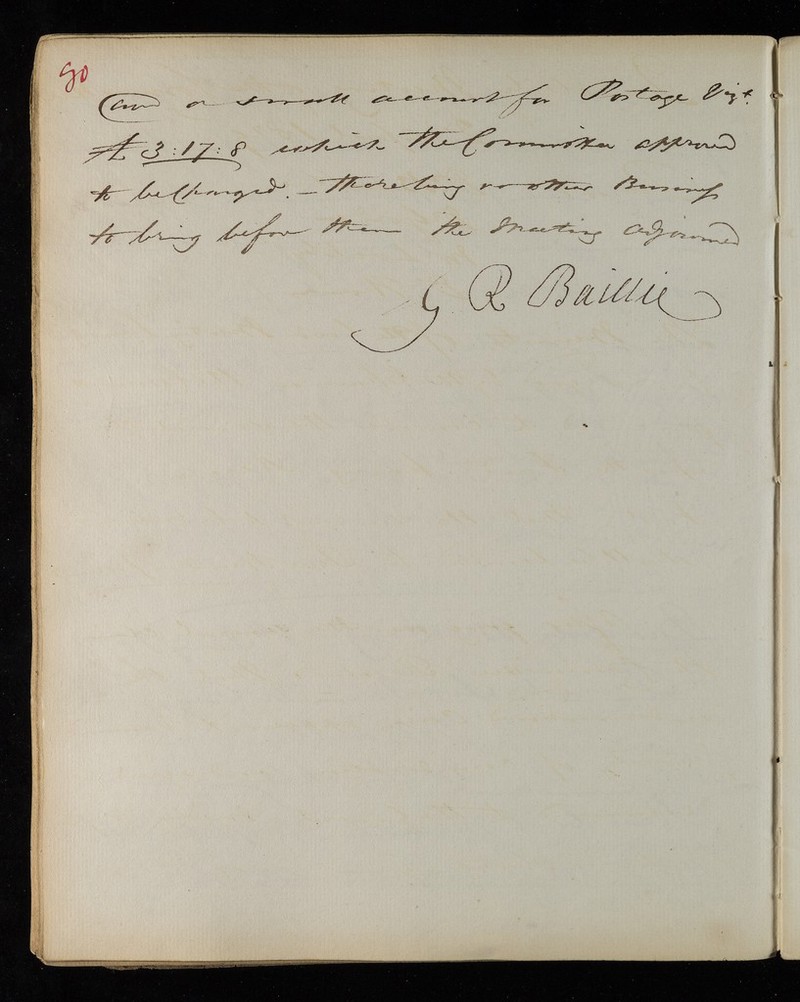 90
and a small account for Postage Vizt.
£ 3:17:8 which the Committee approved
to be Charged. – there being no other Business
to bring before them the Meeting adjourned
G R Baillie